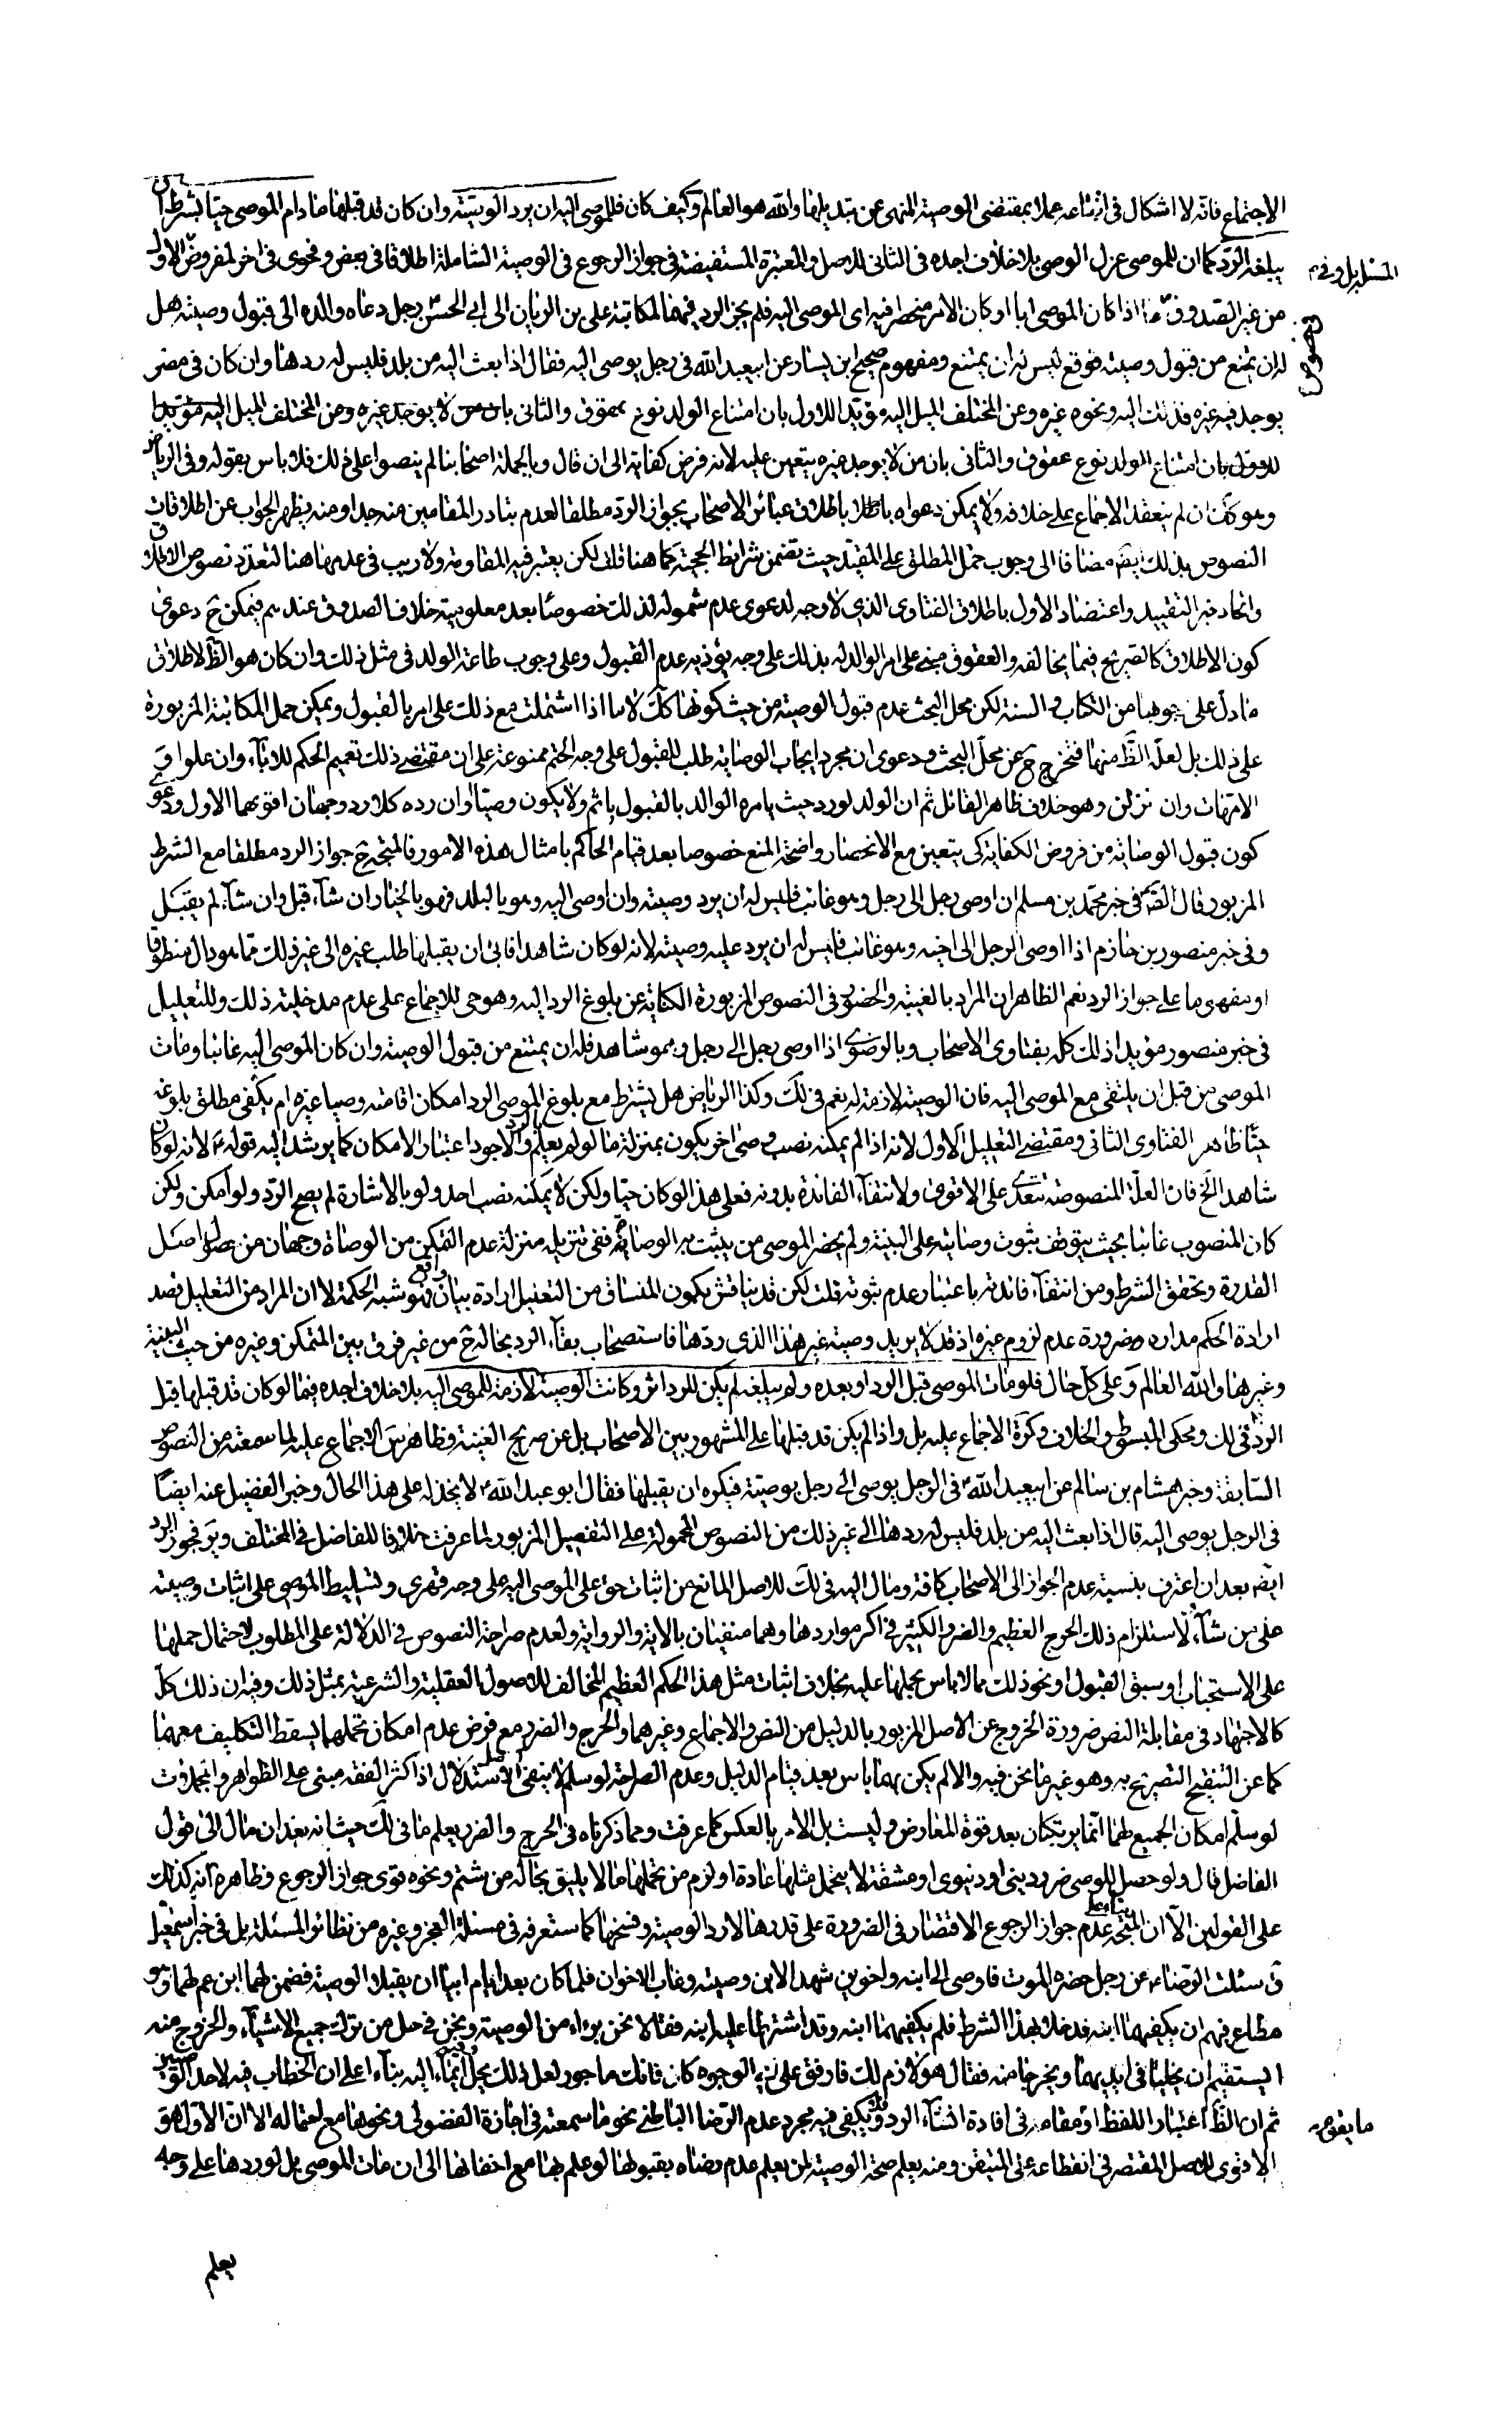 الاجتماع فانه لا اشكال في امتناعه عملا بمقتضى الوصية المنهى عن تبديلها والله هو العالم وكيف كان فللموصى اليه ان يرد الوصية وان كان قد قبلها ما دام الموصى حيا بشرط ان
يبلغه الرد كما ان للموصى عزل الوصي بلا خلاف اجده في الثاني للاصل والمعتبرة المستفيضة في جواز الرجوع في الوصية الشاملة اطلاقا في بعض وفحوى في اخر لمفروض الاول
من غير الصدوق اذا كان الموصى ابا او كان الامر منحصرا فيه اى الموصى اليه فلم يجز الرد فيهما لمكاتبة على بن الريان الى ابي الحسن رجل دعاه والده الى قبول وصيته هل
له ان يمتنع من قبول وصيته فوقع ليس له ان يمتنع ومفهوم صحيح ابن يسار عن ابيعبد الله في رجل يوصى اليه فقال اذا بعث اليه من بلد فليس له ردها وان كان في مصر
يوجد فيه غيره فذلك اليه ونحوه غيره وعن المختلف الميل اليه مؤيدا للاول بان امتناع الولد نوع عقوق والثاني بان من لا يوجد غيره وعن المختلف الميل اليه مؤيدا
للاول بان امتناع الولد نوع عقوق والثاني بان من لا يوجد غيره يتعين عليه لانه فرض كفاية الى ان قال وبالجملة اصحابنا لم ينصوا على ذلك فلا باس بقوله وفي الرياض
وهو كك ان لم ينعقد الاجماع على خلافه ولا يمكن دعواه باطلاق عبائر الاصحاب بجواز الرد مطلقا لعدم تبادر المقامين منه جدا ومنه يظهر الجواب عن اطلاقات
النصوص بذلك ايضا مضافا الى وجوب حمل المطلق على المقيد حيث تضمن شرايط الحجية كما هنا قلت لكن يعتبر فيه المقاومة ولا ريب في عدمها هنا لتعدد نصوص الاطلاق
واتحاد خبر التقييد واعتضاد الاول باطلاق الفتاوى الذي لا وجه لدعوى عدم شموله لذلك خصوصا بعد معلومية خلاف الصدوق عندهم فيمكن ح دعوى
كون الاطلاق كالصريح فيما يخالفه والعقوق مبني على امر الوالد له بذلك على وجه يؤذيه عدم القبول وعلى وجوب طاعة الولد في مثل ذلك وان كان هو الظ لاطلاق
ما دل على وجوبها من الكتاب والسنة لكن محل البحث عدم قبول الوصية من حيث كونها كك لا ما اذا اشتملت مع ذلك على امر بالقبول ويمكن حمل المكاتبة المزبورة
على ذلك بل لعله الظ منها فتخرج ح عن محل البحث ودعوى ان مجرد ايجاب الوصاية طلب للقبول على وجه الحتم ممنوعة على ان مقتضى ذلك تعميم الحكم للاباء وان علوا و
الامهات وان نزلن وهو خلاف ظاهر القائل ثم ان الولد لو رد حيث يامره الوالد بالقبول ياثم ولا يكون وصيا او ان رده كلا رد وجهان اقويهما الاول ودعوى
كون قبول الوصاية من فروض الكفاية كي يتعين مع الانحصار واضحة المنع خصوصا بعد قيام الحاكم بامثال هذه الامور فالمتجه ح جواز الرد مطلقا مع الشرط
المزبور قال الص في خبر محمد بن مسلم ان اوصى رجل الى رجل وهو غائب فليس له ان يرد وصيته وان اوصى اليه وهو بالبلد فهو بالخيار ان شاء قبل وان شاء لم يقبل
وفي خبر منصور بن حازم اذا اوصى الرجل الى اخيه وهو غائب فليس له ان يرد عليه وصيته لانه لو كان شاهدا فابى ان يقبلها طلب غيره الى غير ذلك مما هو دال منطوقا
او مفهوما على جواز الرد نعم الظاهر ان المراد بالغيبة والحضور في النصوص المزبورة الكناية عن بلوغ الرد اليه وهو حي للاجماع على عدم مدخلية ذلك وللتعليل
في خبر منصور مؤيدا ذلك كله بفتاوى الاصحاب وبالرضوى اذا اوصى رجل الى رجل وهو شاهد فله ان يمتنع من قبول الوصية وان كان الموصى اليه غائبا ومات
الموصى من قبل ان يلتقي مع الموصى اليه فان الوصية لازمة له نعم في لك وكذا الرياض هل يشترط مع بلوغ الموصى الرد امكان اقامته وصيا غيره ام يكفى مطلق بلوغه
حيا ظاهر الفتاوى الثاني ومقتضى التعليل الاول لانه اذا لم يمكنه نصب وصى اخر يكون بمنزلة ما لو لم يعلم بالرد والاجود اعتبار الامكان كما يرشد اليه قوله ع لانه لو كان
شاهدا الخ فان العلة المنصوصة تتعدى على الاقوى ولانتفاء الفائدة بدونه فعلى هذا لو كان حيا ولكن لا يمكنه نصب احد ولو بالاشارة لم يصح الرد ولو امكن ولكن
كان المنصوب غائبا بحيث يتوقف ثبوت وصايته على البينة ولم يحضر الموصى من يثبت به الوصاية ففى تنزيله منزلة عدم التمكن من الوصاة وجهان من حصول اصل
القدرة وتحقق الشرط ومن انتفاء فائدته باعتبار عدم ثبوته قلت لكن قد يناقش بكون المنساق من التعليل ارادة بيان رفع شبه الحكمة لا ان المراد من التعليل قصد
ارادة الحكم مداره ضرورة عدم لزوم غيره اذ قد لا يريد وصية غير هذا الذى ردها فاستصحاب بقاء الرد بحاله ح من غير فرق بين المتمكن وغيره من حيث البينة
وغيرها والله العالم وعلى كل حال فلو مات الموصى قبل الرد او بعده ولم يبلغه لم يكن للرد اثر وكانت الوصية لازمة للموصى اليه بلا خلاف اجده فيما لو كان قد قبلها قبل
الرد في لك ومحكى المبسوط والخلاف وكره الاجماع عليه بل واذا لم يكن قد قبلها على المشهور بين الاصحاب بل عن صريح الغنية وظاهر س الاجماع عليه لما سمعته من النصوص
السابقة وخبر هشام بن سالم عن ابيعبد الله ع في الرجل يوصى الى رجل بوصيته فيكره ان يقبلها فقال ابو عبد الله ع لا يخذله على هذا الحال وخبر الفضيل عنه ايضا
في الرجل يوصى اليه قال اذا بعث اليه من بلد فليس له ردها الى غير ذلك من النصوص المحمولة على التفصيل المزبور لما عرفت خلافا للفاضل في المختلف وير فجوز الرد
ايضا بعد ان اعترف بنسبة عدم الجواز الى الاصحاب كافة ومال اليه في لك للاصل المانع من اثبات حق على الموصى اليه على وجه قهرى وتسليط الموصى على اثبات وصيته
على من شاء ولاستلزام ذلك الحرج العظيم والضرر الكثير في اكثر مواردها وهما منفيان بالاية والرواية ولعدم صراحة النصوص في الدلالة على المطلوب لاحتمال حملها
على الاستحباب او سبق القبول او نحو ذلك مما لا باس بحملها عليه بخلاف اثبات مثل هذا الحكم العظيم المخالف للاصول العقلية والشرعية بمثل ذلك وفيه ان ذلك كله
كالاجتهاد في مقابلة النص ضرورة الخروج عن الاصل المزبور بالدليل من النص والاجماع وغيرهما والحرج والضرر مع فرض عدم امكان تحملهما يسقط التكليف معهما
كما عن التنقيح التصريح به وهو غير ما نحن فيه والا لم يكن بهما باس بعد قيام الدليل وعدم الصراحة لو سلم لا ينفى الاستدلال اذ اكثر الفقه مبنى على الظواهر والمجازات
لو سلم امكان الجميع لهما انما يرتكبان بعد قوة المعارض وليست بل الامر بالعكس كما عرفت ومما ذكرناه في الحرج والضرر يعلم ما في لك حيث انه بعد ان مال الى قول
الفاضل قال ولو حصل للموصى ضرر دينى او دنيوى او مشقة لا يتحمل مثلها عادة او لزم من تحملها ما لا يليق بحاله من شتم ونحوه قوى جواز الرجوع وظاهره انه كذلك
على القولين الا ان المتجه بناء على عدم جواز الرجوع الاقتصار في الضرورة على قدرها لا رد الوصية وفسخها كما ستعرفه في مسئلة العجز وغيره من نظائر المسئلة بل في خبر اسمعيل
ق سئلت الرضا ع عن رجل حضره الموت فاوصى الى ابنه واخوين شهد الابن وصيته وغاب الاخوان فلما كان بعد ايام ابيا ان يقبلا الوصية فضمن لهما ابن عم لهما وهو
مطاع فيهم ان يكفيهما ابنه فدخلا بهذا الشرط فلم يكفيهما ابنه وقد اشترطا عليه ابنه فقالا نحن براء من الوصية ونحن في حل من ترك جميع الاشياء والخروج منه
ايستقيم ان يخليا في ايديهما ويخرجا منه فقال هو لازم لك فارفق على اى الوجوه كان فانك ماجور لعل ذلك يحل بابنه اليه بناء على ان الخطاب فيه لاحد الوصيين
ثم ان الظ اعتبار اللفظ او مقامه في افادة انشاء الرد فلا يكفى فيه مجرد عدم الرضا الباطنى نحو ما سمعته في اجازة الفضولى ونحوها مع احتماله الا ان الاول هو
الاقوى للاصل المقتصر في انقطاعه على المتيقن ومنه يعلم صحة الوصية لمن يعلم عدم رضاه بقبولها لو علم بها مع اخفائها الى ان مات الموصى بل لو ردها على وجه
يعلم